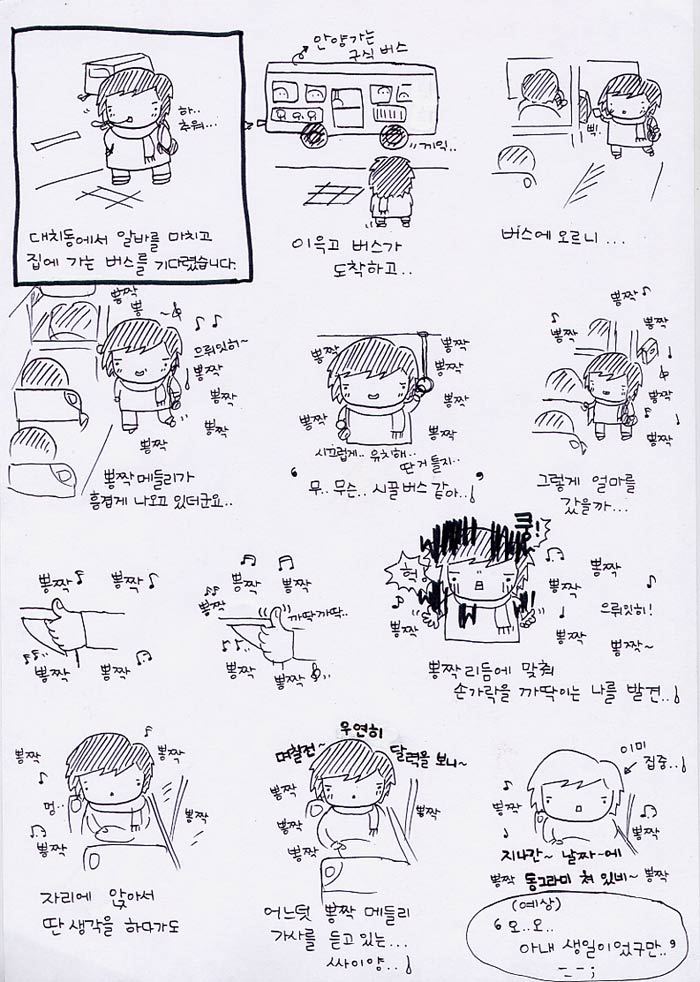 하..
추워...
대치동에서 알바를 마치고
집에 가는 버스를 기다렸습니다.
안양가는
구식 버스
끼익..
이윽고 버스가
도착하고..
삑.
버스에 오르니...
뽕짝
뽕
으뤼잇히~
뽕짝
뽕짝
뽕짝
뽕짝
뽕짝 메들리가
흥겹게 나오고 있더군요..
뽕짝
뽕짝
뽕짝
뽕짝
뽕짝
뽕짝
시끄럽게.. 유치해..
딴거 들지..
'무..무슨.. 시골버스 같아..!'
뽕짝
뽕짝
뽕짝
뽕짝
뽕짝
그렇게 얼마를
갔을까...
뽕짝 뽕짝
뽕짝 뽕짝
뽕짝 뽕짝
뽕짝
까딱까딱..
뽕짝 뽕짝
쿵!
헉!
뽕짝
뽕짝
뽕짝
으뤼잇히!
뽕짝
뽕짝~
뽕짝 리듬에 맞춰
손가락을 까딱이는 나를 발견..!
뽕짝 뽕짝
멍..
뽕짝
뽕짝
자리에 앉아서
딴 생각을 하다가도
우연히
며칠전~ 달력을 보니~
뽕짝
뽕짝
뽕짝
뽕짝
어느덧 뽕짝 메들리
가사를 듣고 있는...
싸이양..!
이미
집중..!
뽕짝
뽕짝
지나간~ 날짜~에
뽕짝 동그라미 쳐 있네~ 뽕짝
(예상)
'오..오..
아내 생일이었구만..'
ㅡㅡ;